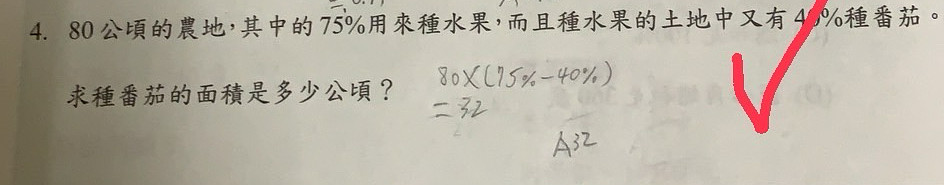 4. 80公頃的農地，其中的75%用來種水果，而且種水果的土地中又有40%種番茄。
求種番茄的面積是多少公頃？ 80×(75%-40%)
=32
A32